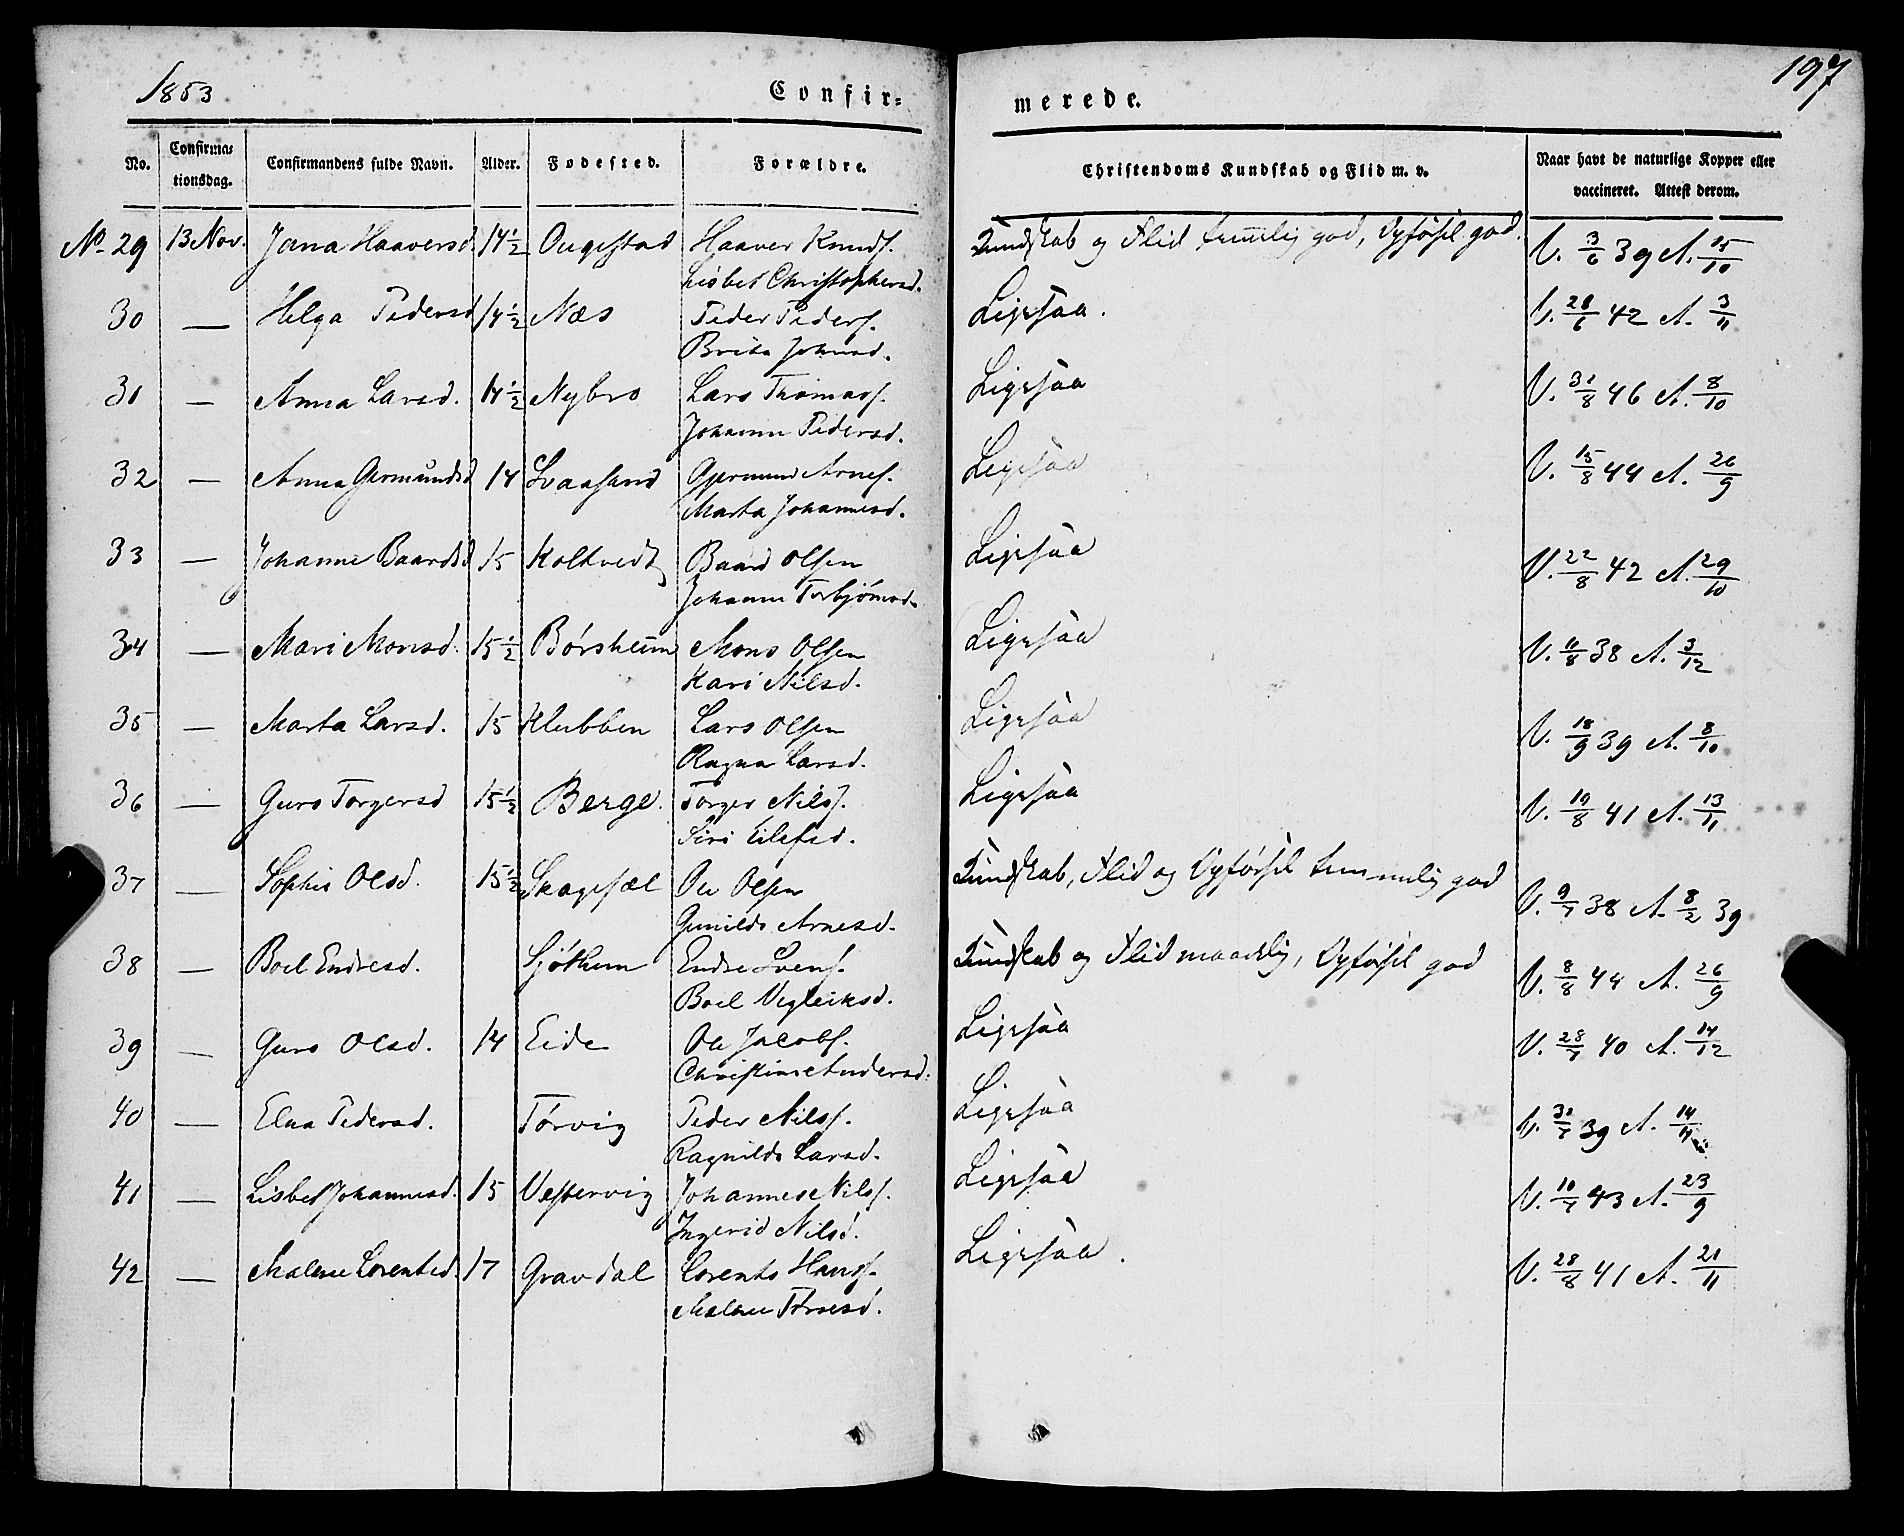 1853
Confir=
merede.
197
No.
Confirma=
tionsdag.
Confirmandens fulde Navn.
Alder.
Fødested.
Forældre.
Christendoms Kundskab og Flid m. v.
Naar havt de naturlige Kopper eller
vaccineret. Attest derom.
No 29 13 Nov. Jana Haaversd. 14 1/2 Augestad Haaver Knuds. Kundskab og Flid temelig god, Opførsel god. V. 3/6 39 A. 15/10
Lisbet Christophersd.
30 — Helga Pedersd 14 1/2 Næs Peder Peders. Ligesaa. V. 28/6 42 A. 3/11
Brita Johnsd.
31 — Anna Larsd. 14 1/2 Nybro Lars Thomass. Ligesaa V. 31/8 46 A. 8/10
Johanne Pedersd.
32 — Anna Germundsd 14 Svaasand Gjermund Arnes. Ligesaa V. 15/8 44 A. 26/9
Marta Johannesd.
33 — Johanne Baardsd 15 Koltvedt Baard Olsen Ligesaa V. 22/8 42 A. 29/10
Johanne Torbjørnsd.
34 — Mari Monsd. 15 1/2 Børsheim Mons Olsen Ligesaa V. 11/8 38 A. 3/12
Kari Nilsd.
35 — Marta Larsd. 15 Klubben Lars Olsen Ligesaa V. 18/9 39 A. 8/10
Ragna Larsd.
36 — Guro Torgersd 15 1/2 Berge. Torger Nilss. Ligesaa V. 19/8 41 A. 13/11
Siri Eilefsd.
37 — Sophie Olsd. 15 1/2 Skagesæl Ole Olsen Kundskab, Flid og Opførsel temmelig god V. 9/7 38 A. 8/2 39
Gunilda Arnesd.
38 — Boel Endresd. Sjøthun Endre Svens. Kundskab og Flid maadelig, Opførsel god V. 8/8 44 A. 26/9
Boel Vegleiksd.
39 — Guro Olsd. 14 Eide Ole Jacobs. Ligesaa V. 28/7 40 A. 14/12
Christine Andersd.
40 — Elna Pedersd. Tørvig Peder Nilss. Ligesaa V. 31/7 39 A. 14/11
Ragnilda Larsd.
41 — Lisbet Johannesd. 15 Vestervig Johannes Nilss. Ligesaa V. 10/7 43 A. 23/9
Ingerid Nilsd.
42 — Malene Lorentsd. 17 Gravdal Lorents Hanss. Ligesaa. V. 28/8 41 A. 21/11
Malene Tørresd.